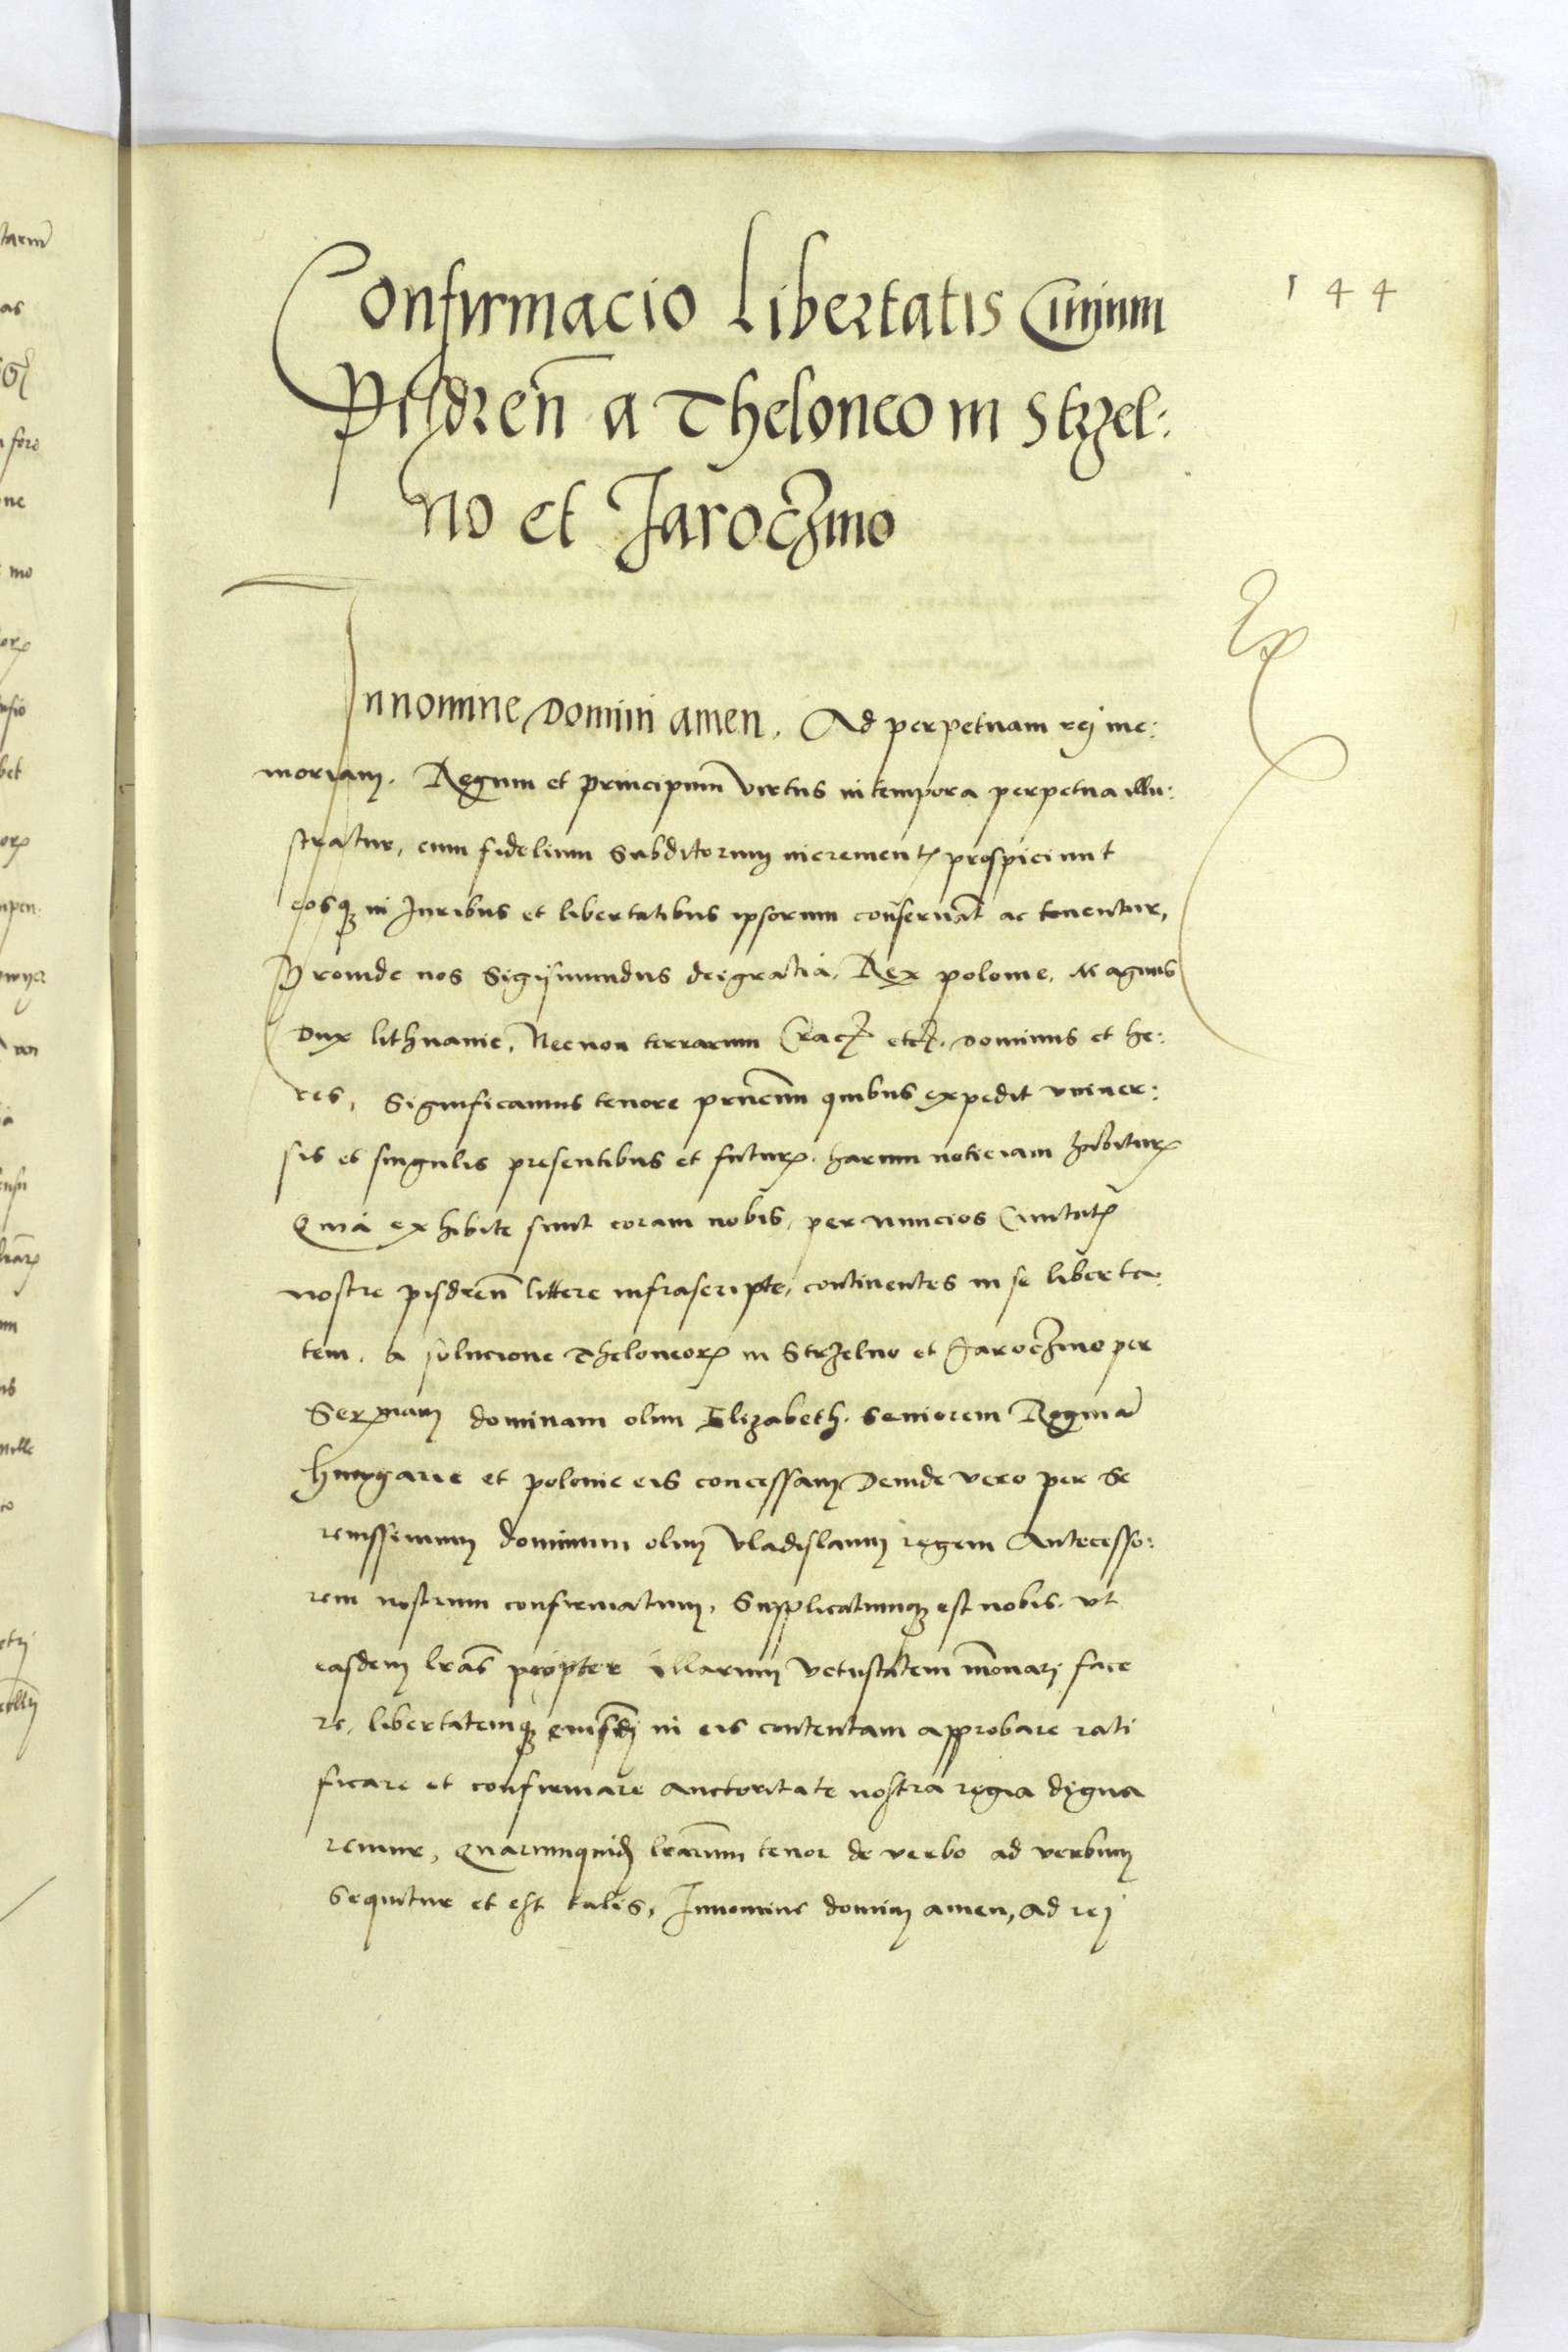 144
Confirmacio Libertatis Civium
Pisdren̄ a Theloneo in Strzel:
no et Jaroczino
In nomine Domini amen. Ad perpetuam rei me:
moriam. Regum et principum virtus in tempora perpetua illu:
stratur, cum fidelium Subditorum incrementis prospiciunt
eosq; in Juribus et libertatibus ipsorum conservāt ac tenentur,
Proinde nos Sigismundus dei gratia. Rex polonie. Magnus
Dux lithuanie. Necnon terrarum Crac̄ etc̄. Dominus et he:
res, Significamus tenore pn̄cium quibus expedit univer:
sis et singulis presentibus et futuris. harum noticiam hābituris
Quia exhibite sunt coram nobis, per nuncios Civitatis
nostre pisdren̄ littere infrascripte, continentes in se liberta:
tem. a solucione Theloneorꝝ in Strzelno et Jaroczino per
Ser mam dominam olim Elizabeth. Seniorem Reginā
hungarie et polonie eis concessam Deinde vero per Se
renissimum dominum olim Vladislaum regem Antecesso:
rem nostrum confirmatum. Supplicatumq; est nobis. ut
easdem lrās propter illarum vetustatem īnovari face
re, libertatemq; eiusdē in eis contentam approbare rati
ficare et confirmare auctoritate nostra regia digna
remur, Quarumquid; lrārum tenor de verbo ad verbum
Sequitur et est talis, In nomine domini amen, ad rei